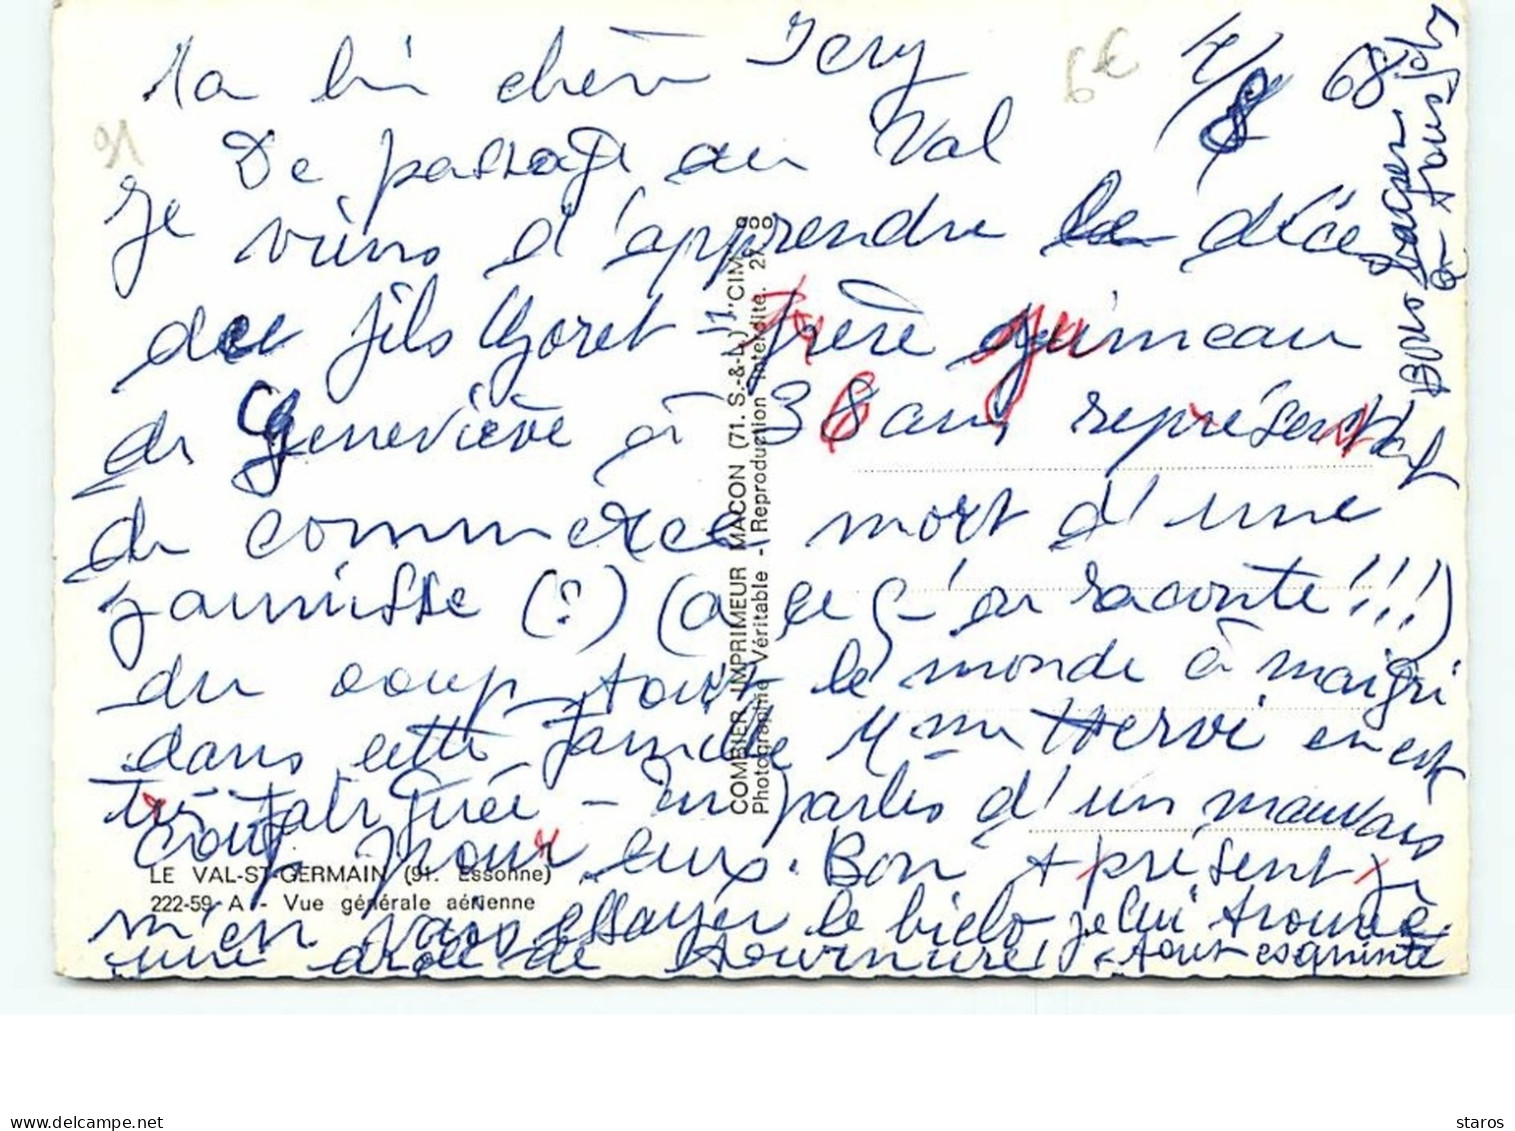 Ma bin chère Jery 7/8 68
6€
91
De passage au Val
Je viens d'apprendre le décé
du fils Choret - frère jumeau
de Geneviève à 38 ans, représentant
de commerce mort d'une
jaunisse (?) (a ce q'on raconte!!!)
du coup tout le monde à maigri
dans cette famille Mme Hervé en est
très fatiguée - en parler d'un mauvais
coup pour eux. Bon + présent je
m'en vais essayer le biclo je lui trouve
une drôle de tournure! tout esquinté
Bons baisers
à tous
COMBIER IMPRIMEUR MACON (71. S.-&-L.) "CIM"
Photographie Véritable - Reproduction Interdite.
LE VAL-ST-GERMAIN (91. Essonne)
222-59 A - Vue générale aérienne
delcampe.net
staros